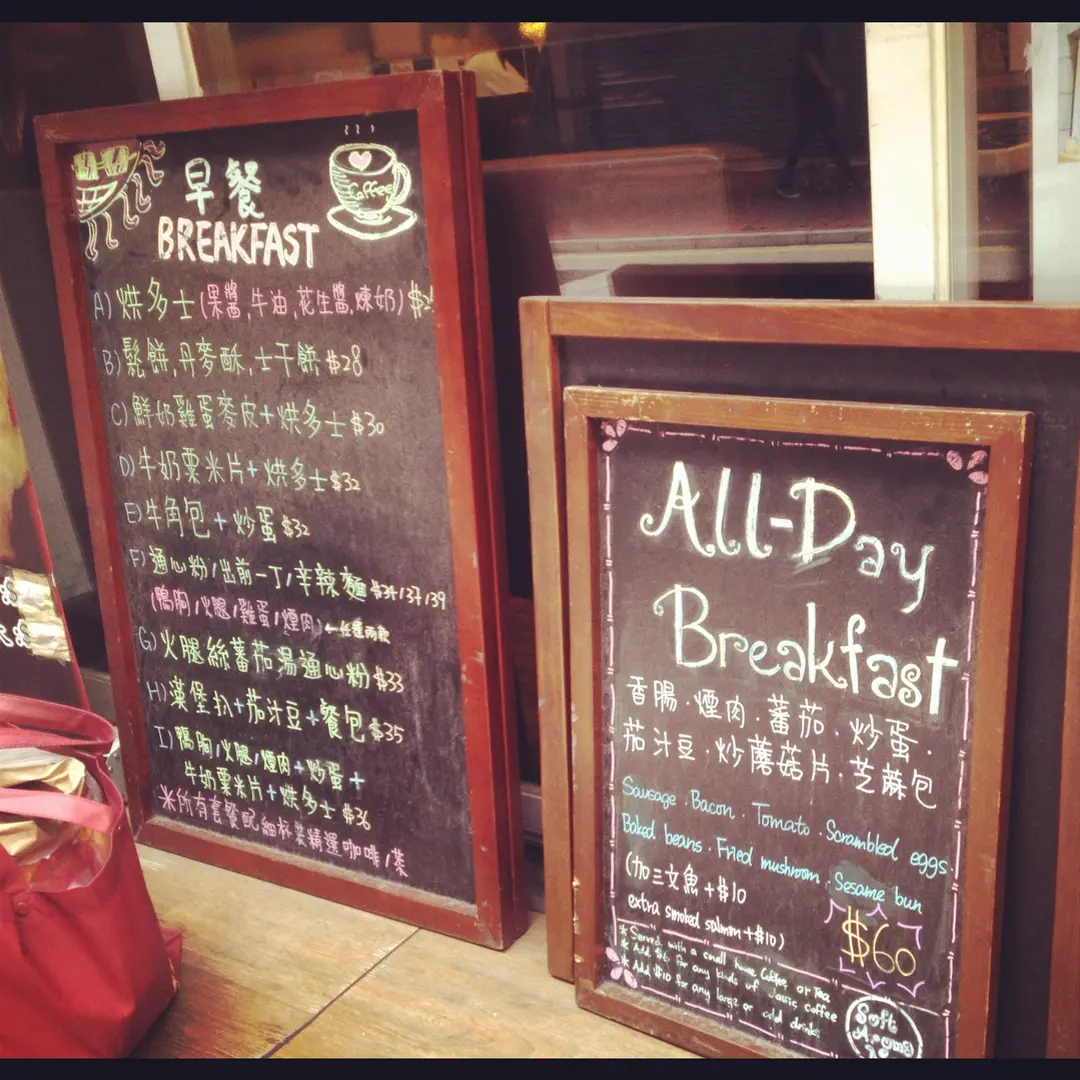 早餐
BREAKFAST
Coffee
A) 烘多士 (果醬, 牛油, 花生醬, 煉奶)
B) 鬆餅, 丹麥酥, 士干餅 $28
C) 鮮奶雞蛋麥皮 + 烘多士 $30
D) 牛奶粟米片 + 烘多士 $32
E) 牛角包 + 炒蛋 $32
F) 通心粉/出前一丁/辛辣麵 $34/37/39
(鴨胸/火腿/雞蛋/煙肉) ←任選兩款
G) 火腿絲蕃茄湯通心粉 $33
H) 漢堡扒+茄汁豆+餐包 $35
I) 鴨胸/火腿/煙肉+炒蛋+
牛奶粟米片+烘多士 $36
米所有套餐配細杯裝精選咖啡/茶
All-Day
Breakfast
香腸.煙肉.蕃茄.炒蛋.
茄汁豆.炒蘑菇片.芝麻包
Sausage. Bacon. Tomato. Scrambled eggs.
Baked beans. Fried mushroom. Sesame bun
(加三文魚 +$10
extra smoked salmon +$10)
$60
* Served with a small house Coffee or Tea
* Add $6 for any kinds of classic coffee
* Add $10 for any large or cold drinks
Soft
Aroma